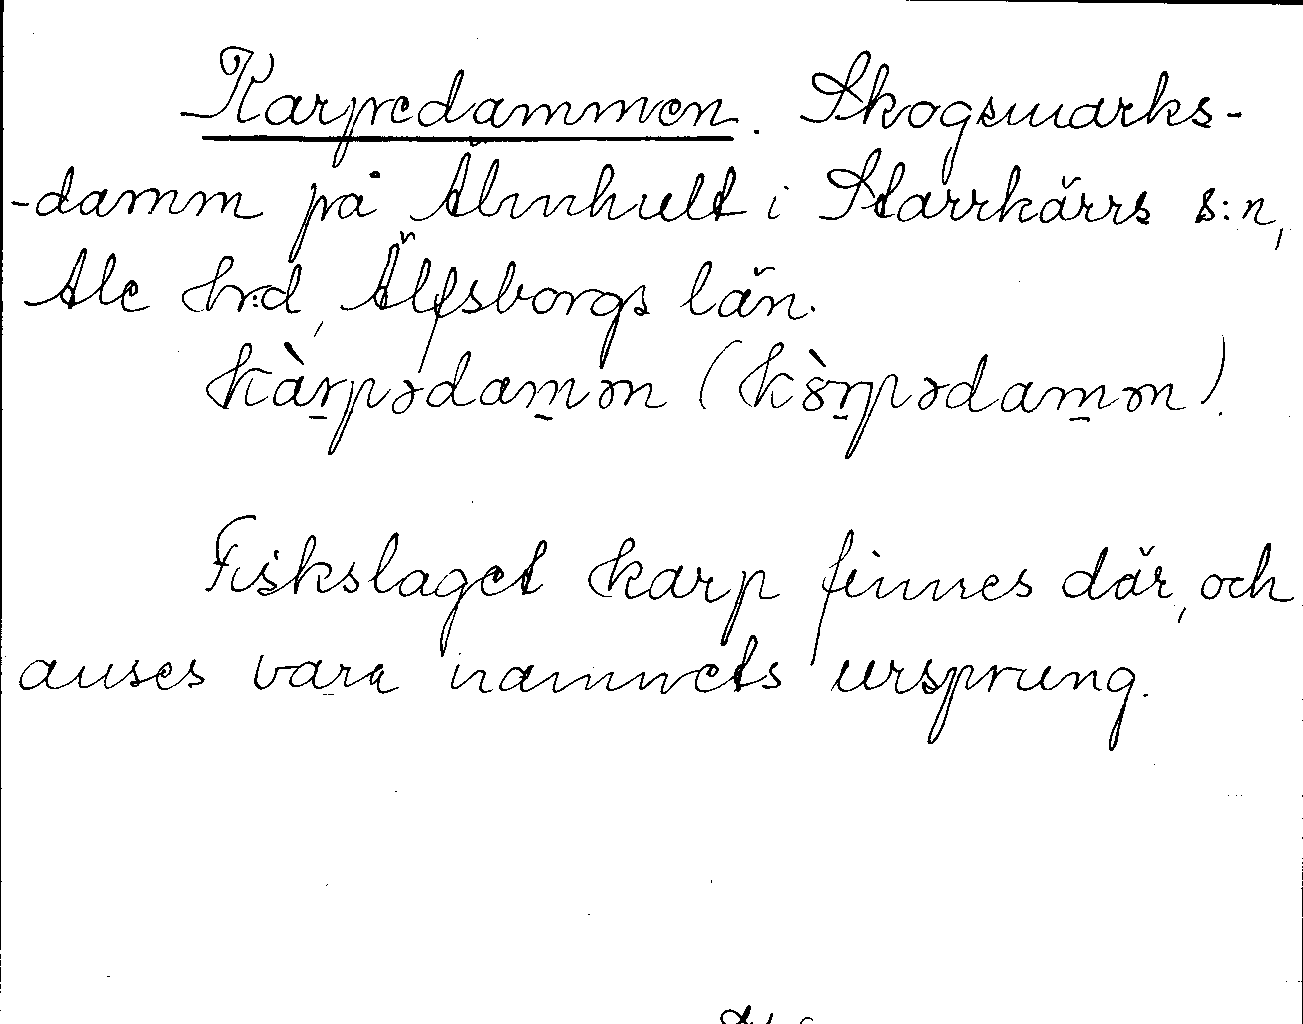 Karpedammen. Skogsmarks-
-damm på Älmhult i Starrkärrs s:n,
Ale hr:d, Älfsborgs län.
kàr̠pədam̠ən (kòr̠pədam̠ən).
Fiskslaget karp finnes där, och
anses vara namnets ursprung.